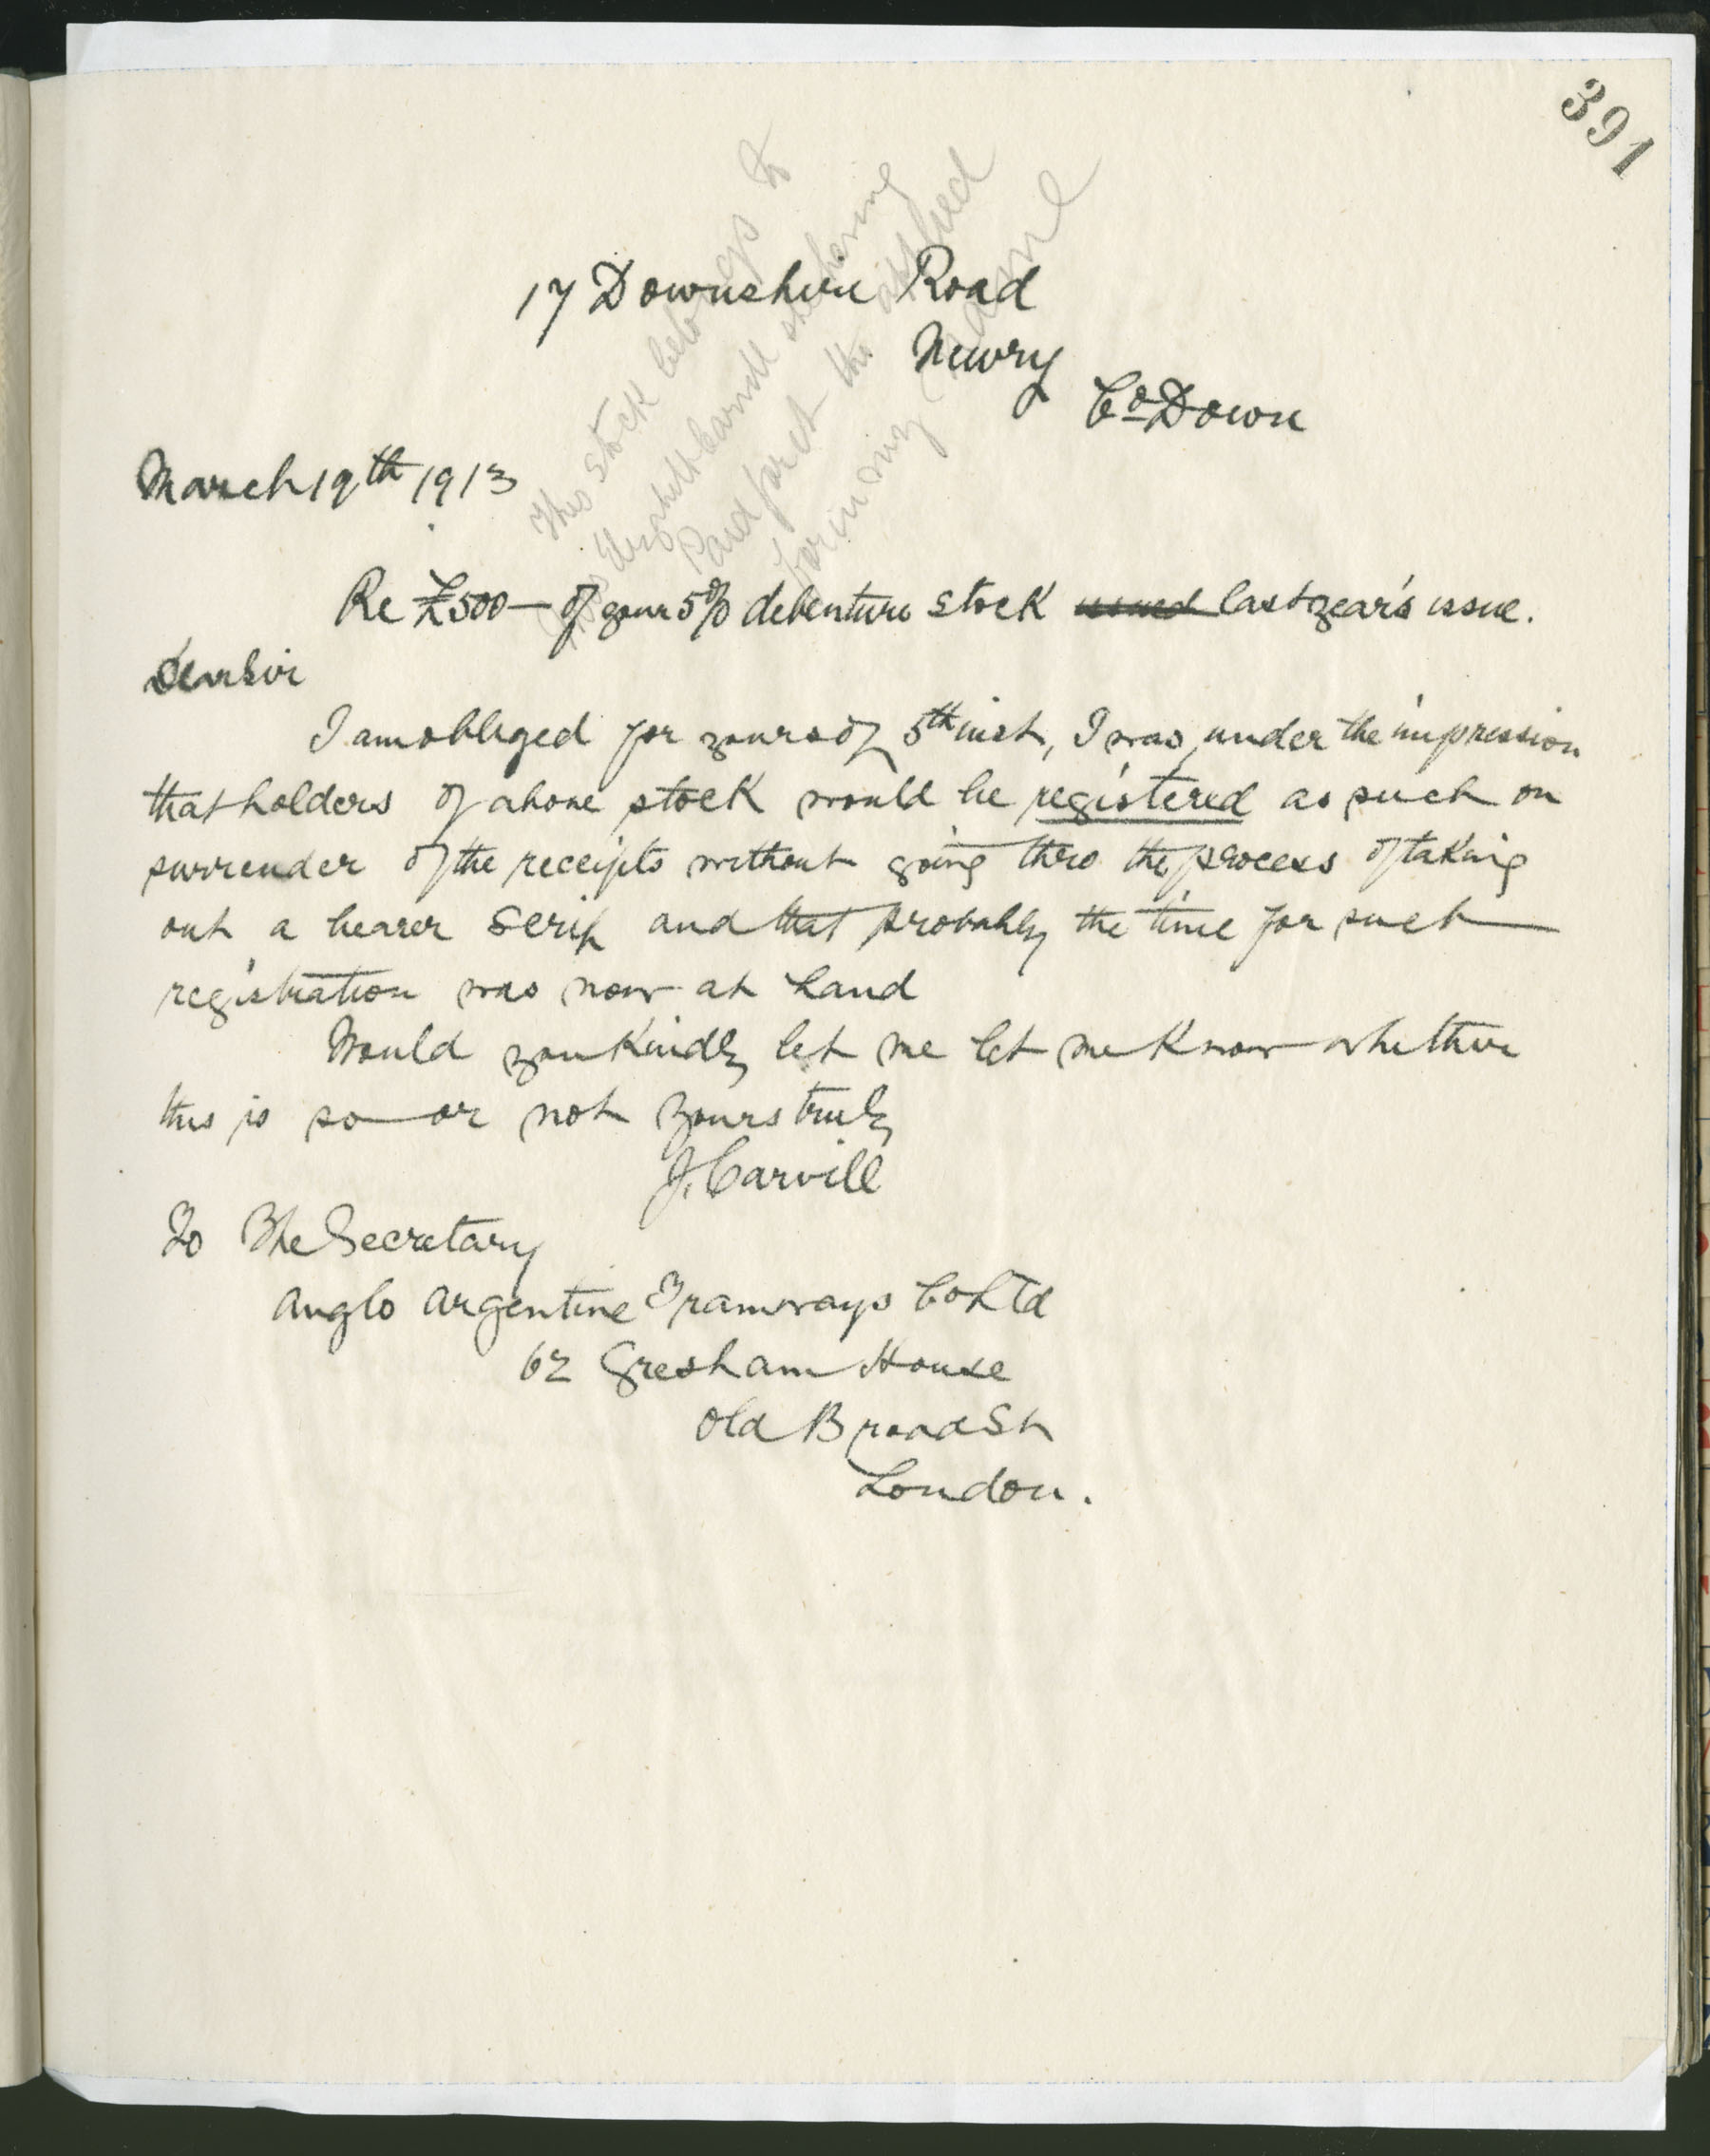 391
17 Downshire Road
Newry
Co Down
March 19th 1913
This stock belongs to
Carvill she having
Paid for it tho applied
for in my name
Re £500 — of your 5% debenture stock issued last year's issue.
Dear Sir
I am obliged for yours of 5th inst, I was under the impression
that holders of above stock would be registered as such on
surrender of the receipts without going thro the process of taking
out a bearer scrip and that probably the time for such
registration was now at hand
Would you kindly let me let me know whether
this is so or not Yours truly
J. Carvill
To The Secretary
Anglo Argentine Tramways Co Ltd
62 Gresham House
Old Broad St
London.